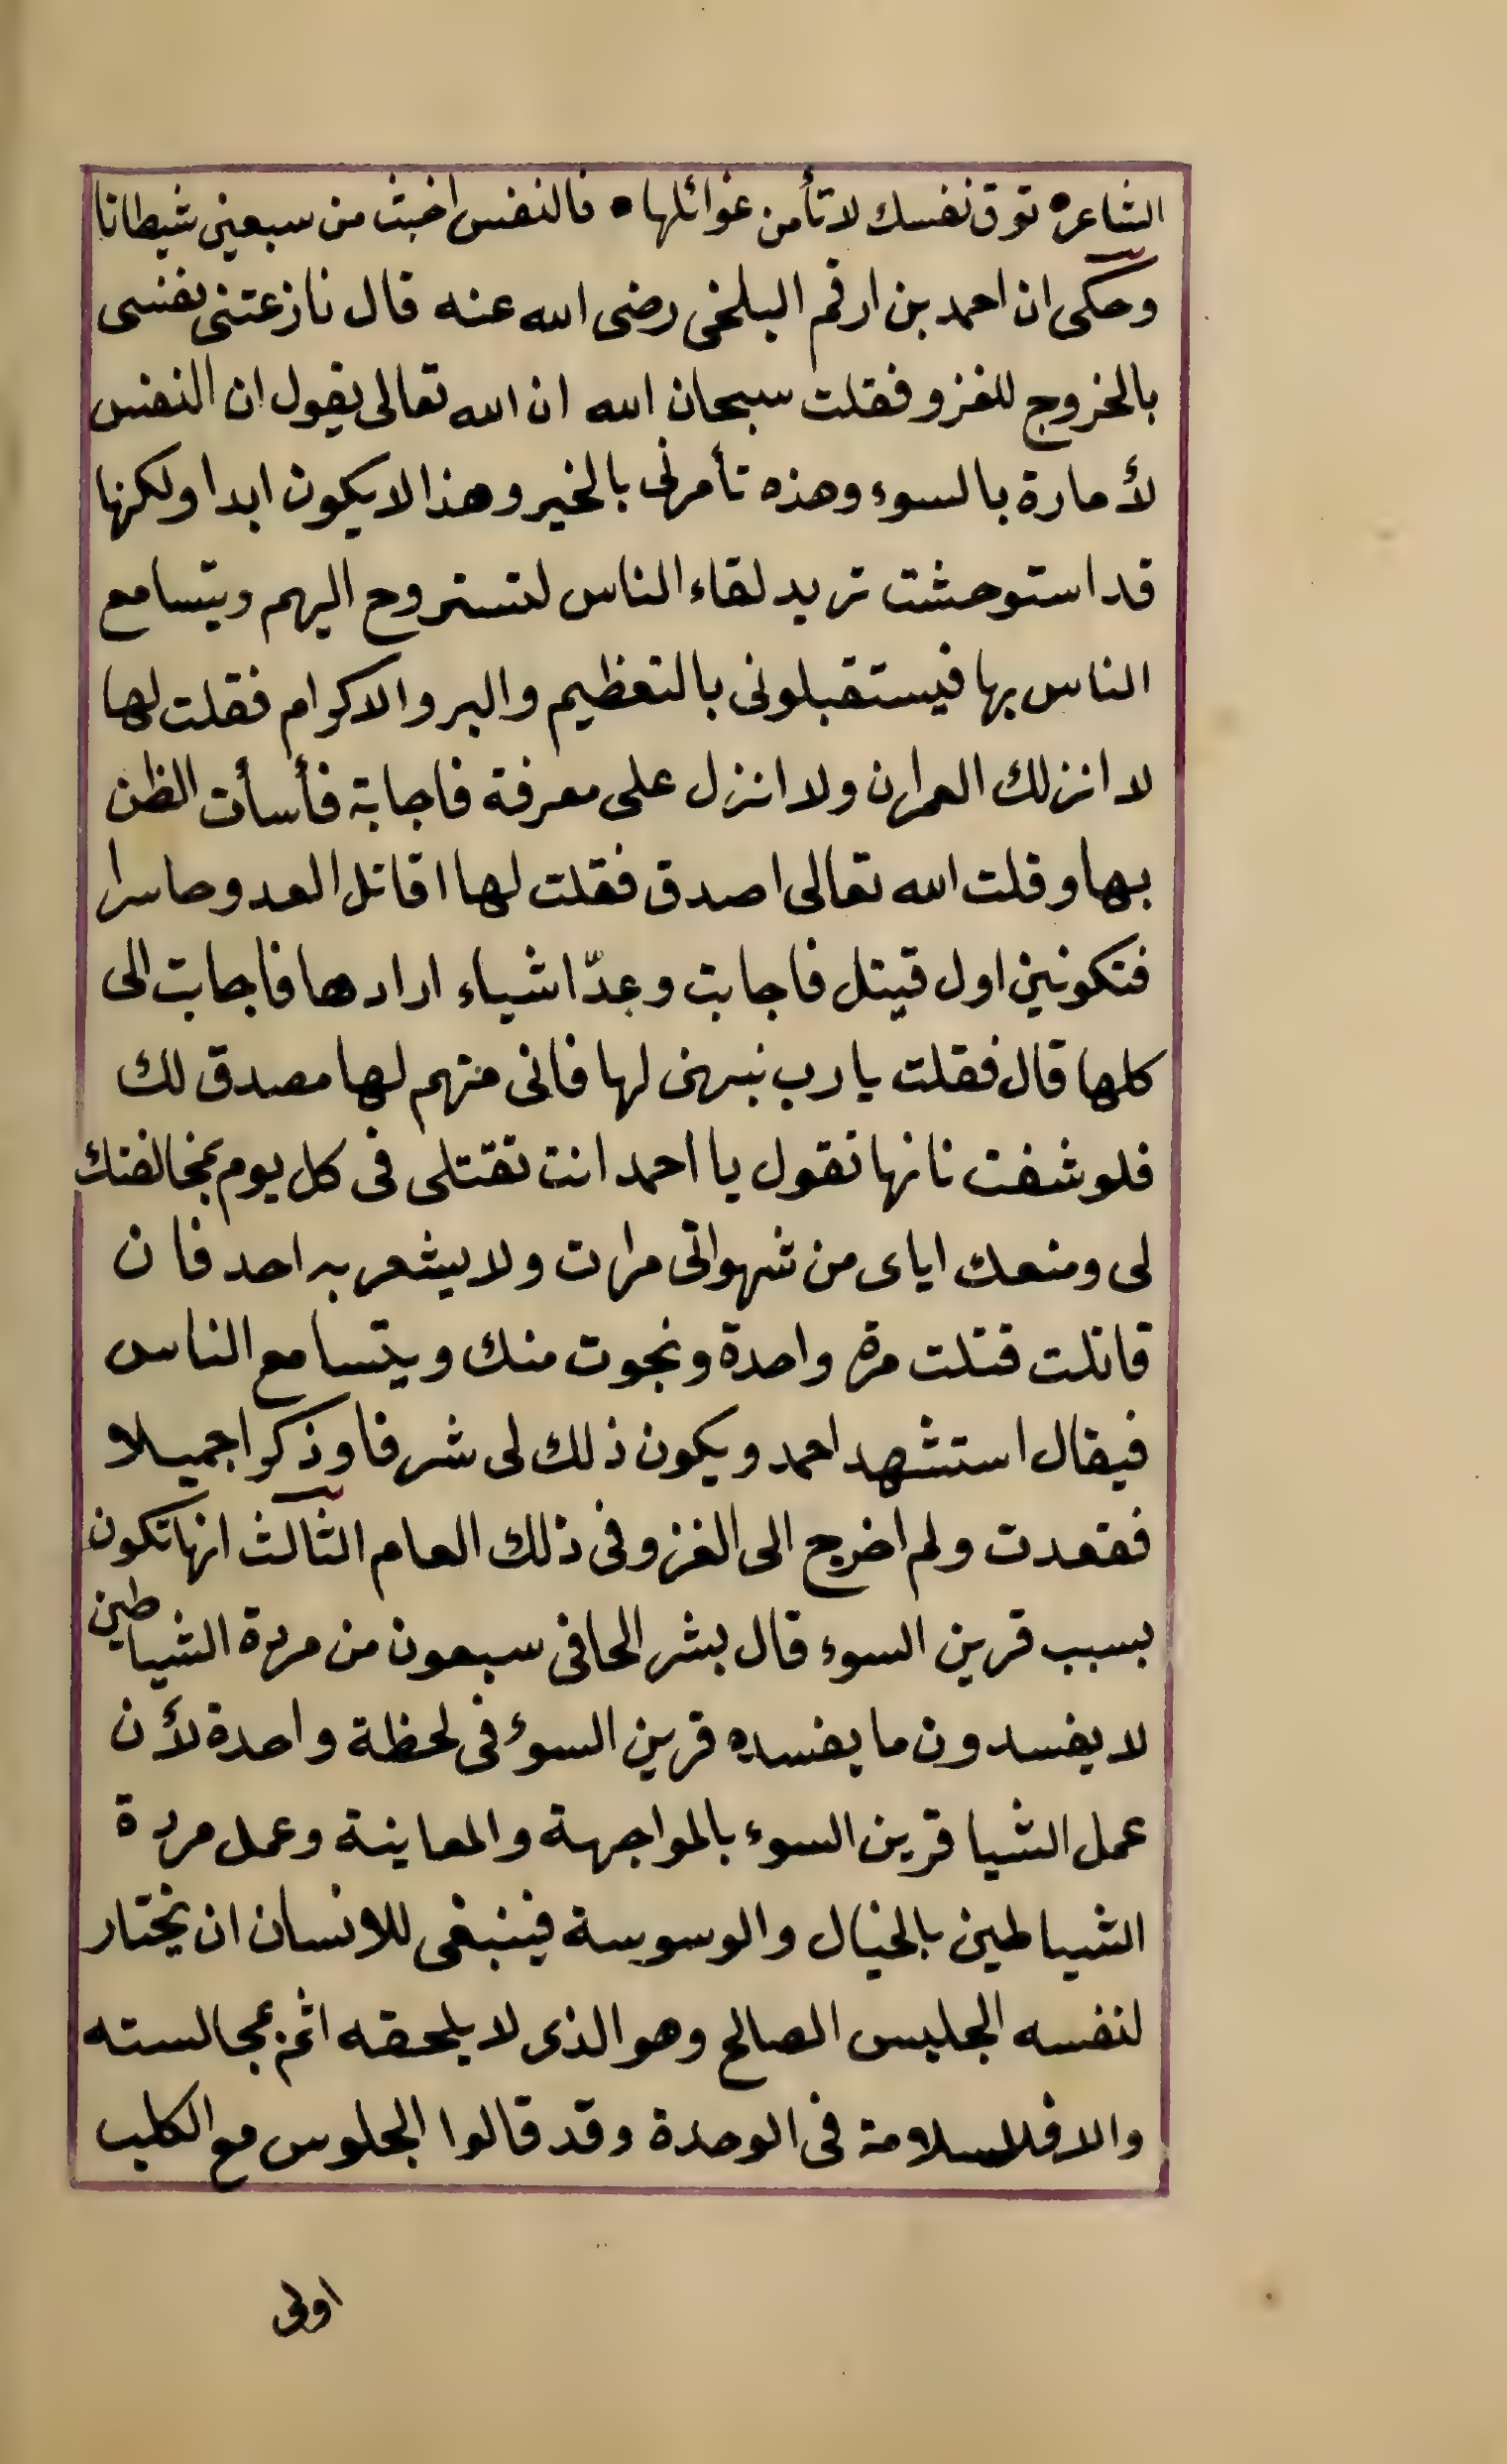 الشاعر ه توق نفسك لا تأمن غوائلها ه فالنفس اخبث من سبعين شيطانا
وحكى ان احمد بن ارقم البلخى رضى الله عنه قال نازعتنى نفسى
بالخروج للغزو فقلت سبحان الله ان الله تعالى يقول ان النفس
لأمارة بالسوء وهذه تأمرنى بالخير وهذا لا يكون ابدا ولكنها
قد استوحشت تريد لقاء الناس لتستروح اليهم ويتسامع
الناس بها فيستقبلونى بالتعظيم والبر والاكرام فقلت لها
لا انزلك العمران ولا انزل على معرفة فاجابة فأسأت الظن
بها وقلت الله تعالى اصدق فقلت لها اقاتل العدو حاسرا
فتكونين اول قتيل فاجابت وعدّ اشياء ارادها فاجابت الى
كلها قال فقلت يا رب نبهنى لها فانى متهم لها مصدق لك
فلوشفت نانها تقول يا احمد انت تقتلى فى كل يوم بمخالفتك
لى ومنعك اياى من شهواتى مرات ولا يشعر به احد فان
قاتلت قتلت مرة واحدة ونجوت منك ويتسامع الناس
فيقال استشهد احمد ويكون ذلك لى شرفا وذكرا جميلا
فقعدت ولم اخرج الى الغزو فى ذلك العام الثالث انها تكون
بسبب قرين السوء قال بشر الحافى سبعون من مردة الشياطين
لا يفسدون ما يفسده قرين السوء فى لحظة واحدة لأن
عمل الشيا قرين السوء بالمواجهة والمعاينة وعمل مردة
الشياطين بالخيال والوسوسة فينبغى للانسان ان يختار
لنفسه الجليس الصالح وهو الذى لا يلحقه اثم بمجالسته
والا فالسلامة فى الوحدة وقد قالوا الجلوس مع الكلب
اولى